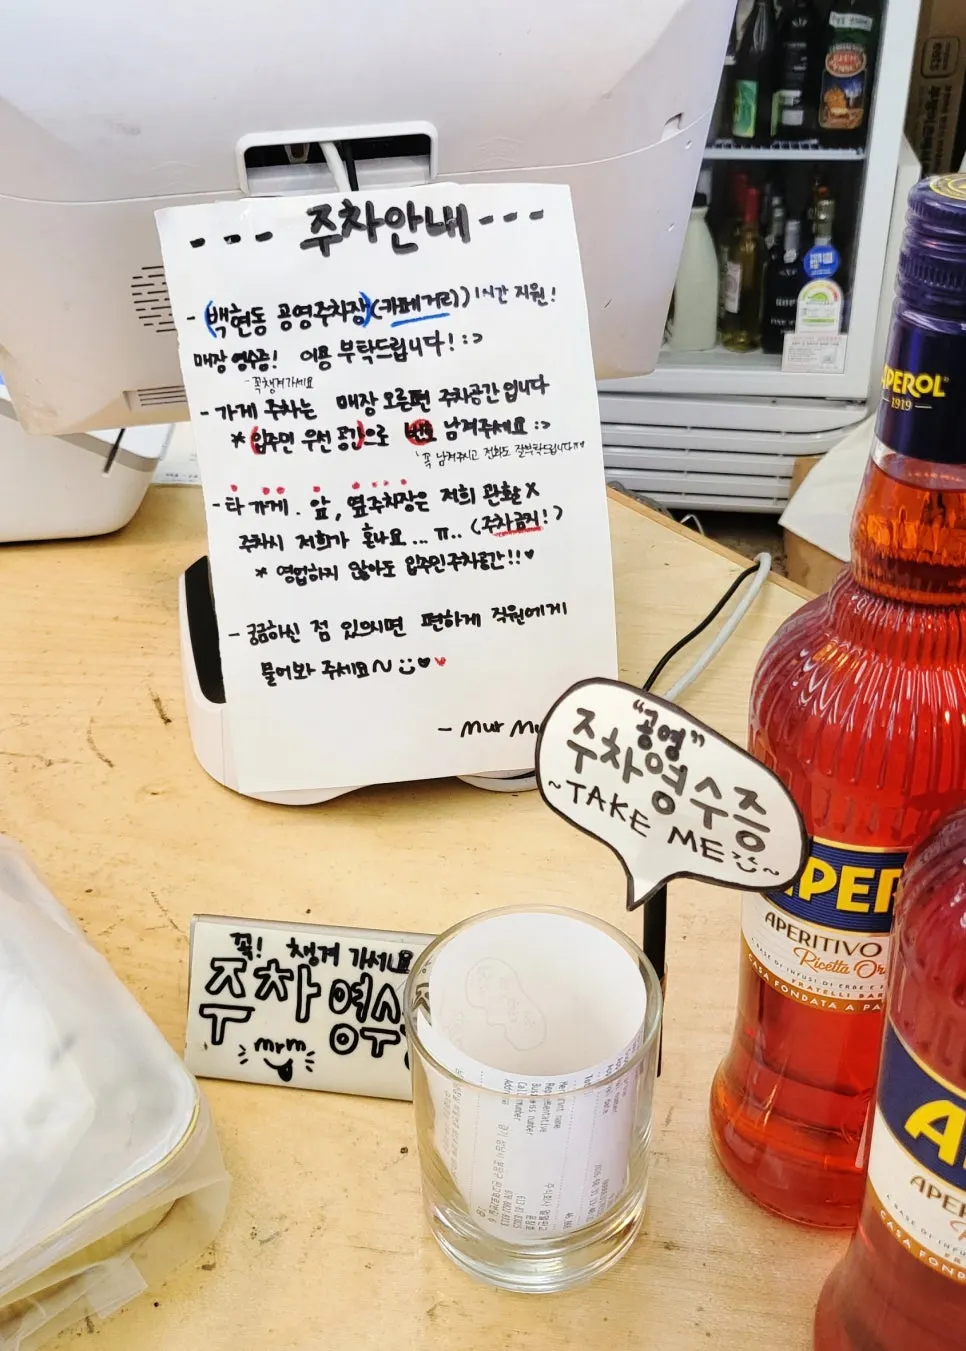 --- 주차안내 ---
- (백현동 공영주차장)(카페거리) 1시간 지원!
매장 영수증! 이용 부탁드립니다! :>
꼭 챙겨가세요
- 가게 주차는 매장 오른편 주차공간 입니다
* (입주민 우선 공간)으로 번호 남겨주세요 :>
꼭 남겨주시고 전화도 잘 부탁드립니다ㅠ♥
- 타 가게. 앞, 옆 주차장은 저희 관할 X
주차시 저희가 혼나요... ㅠ.. (주차금지!)
* 영업하지 않아도 입주민 주차공간!! ♥
- 궁금하신 점 있으시면 편하게 직원에게
물어봐 주세요~ ♥♥
- mur
"공영"
주차영수증
~TAKE ME~
꼭! 챙겨 가세요
주차 영수
mrm
APEROL
1919
APER
APERITIVO
Ricetta Or
CASA FONDATA A PA
A
APE
CASA FOND